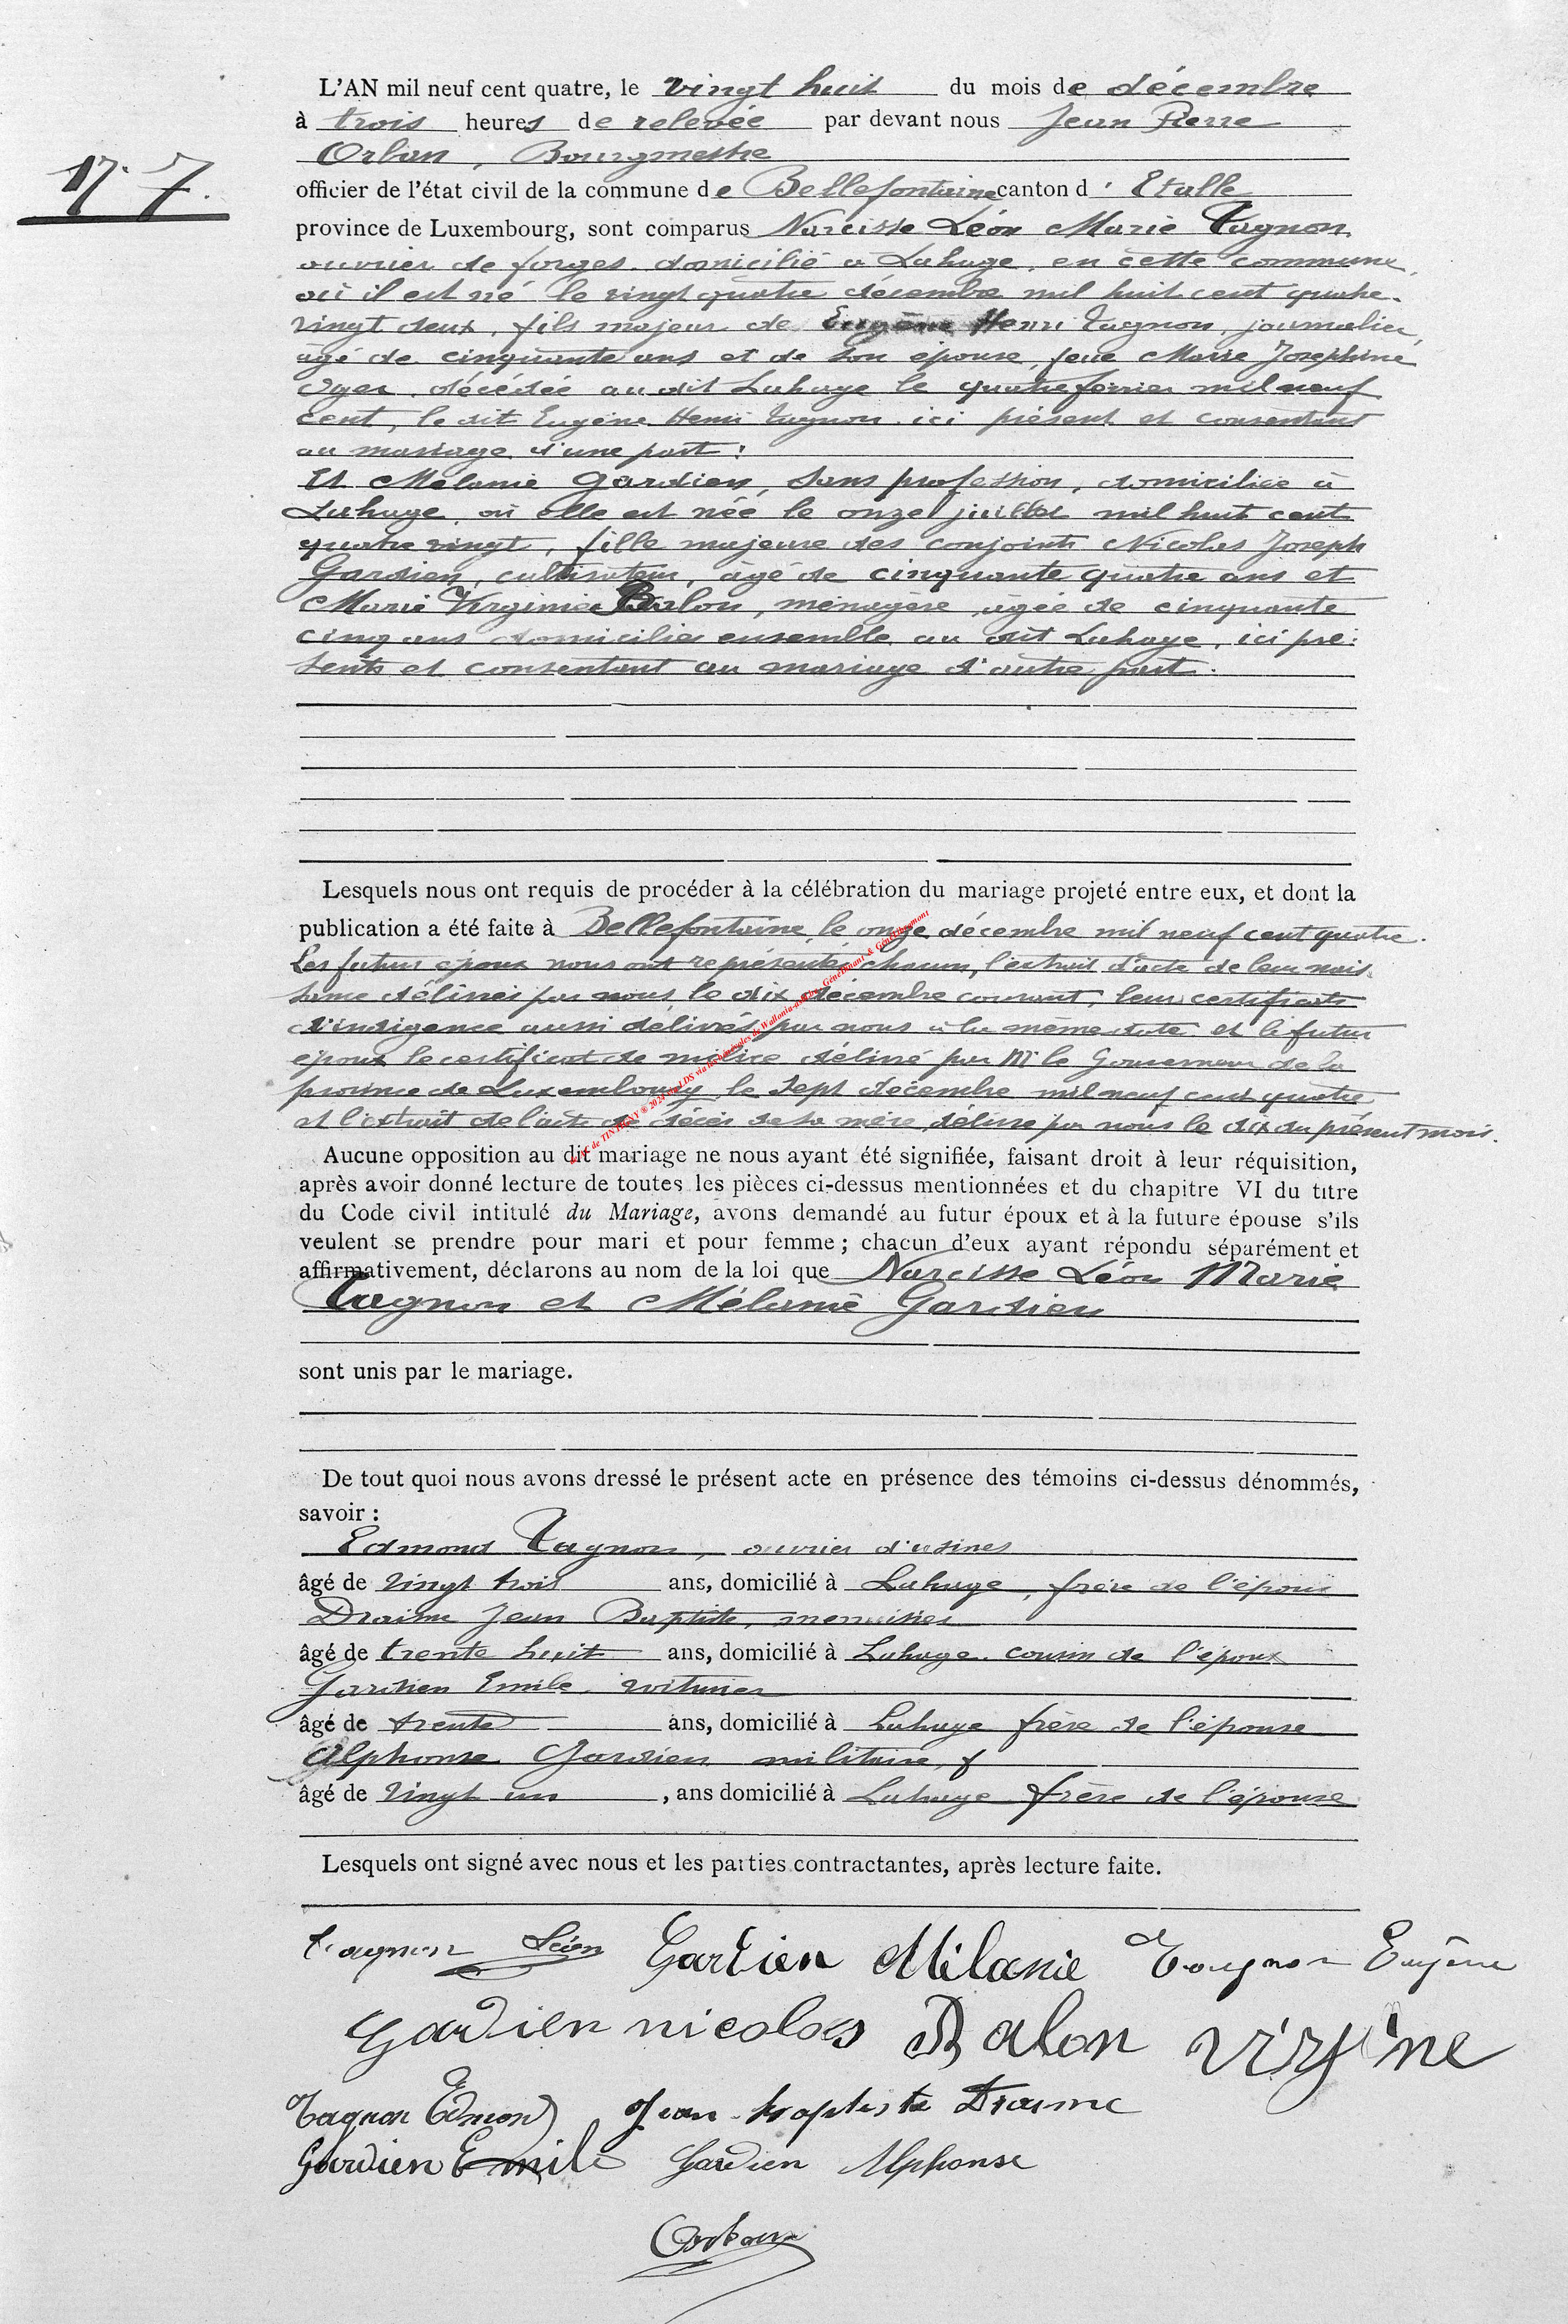 L'AN mil neuf cent quatre, le vingt huit du mois de décembre
à trois heures de relevée par devant nous Jean Pierre
Orban, Bourgmestre
N° 7.
officier de l'état civil de la commune de Bellefontaine canton d'Etalle
province de Luxembourg, sont comparus Narcisse Léon Marie Tagnon
ouvrier de forges, domicilié à Lahage, en cette commune,
où il est né le vingt quatre décembre mil huit cent quatre-
vingt deux, fils majeur de Eugène Henri Tagnon, journalier,
âgé de cinquante ans et de son épouse, feue Marie Joséphine
Oger, décédée au dit Lahage le quatre février mil neuf
cent, le dit Eugène Henri Tagnon ici présent et consentant
au mariage d'une part:
Et Mélanie Gardien, sans profession, domiciliée à
Lahage, où elle est née le onze juillet mil huit cent
quatre vingt, fille majeure des conjoints Nicolas Joseph
Gardien, cultivateur, âgé de cinquante quatre ans et
Marie Virginie Balon, ménagère, âgée de cinquante
cinq ans domiciliés ensemble au dit Lahage, ici pré-
sents et consentant au mariage d'autre part.
Lesquels nous ont requis de procéder à la célébration du mariage projeté entre eux, et dont la
publication a été faite à Bellefontaine, le onze décembre mil neuf cent quatre.
Les futurs époux nous ont représenté, chacun, l'extrait d'acte de leur nais
sance délivrés par nous le dix décembre courant, leurs certificats
d'indigence aussi délivrés par nous à la même date et le futur
époux le certificat de milice délivré par Mr le Gouverneur de la
province de Luxembourg, le sept décembre mil neuf cent quatre
et l'extrait de l'acte de décès de sa mère, délivré par nous le dix du présent mois.
de TINTIGNY © 2024 LDS via les bénévoles de Wallonia-asbl GénéDinant & GénéHannut
Aucune opposition au dit mariage ne nous ayant été signifiée, faisant droit à leur réquisition,
après avoir donné lecture de toutes les pièces ci-dessus mentionnées et du chapitre VI du titre
du Code civil intitulé du Mariage, avons demandé au futur époux et à la future épouse s'ils
veulent se prendre pour mari et pour femme ; chacun d'eux ayant répondu séparément et
affirmativement, déclarons au nom de la loi que Narcisse Léon Marie
Tagnon et Mélanie Gardien
sont unis par le mariage.
De tout quoi nous avons dressé le présent acte en présence des témoins ci-dessus dénommés,
savoir :
Edmond Tagnon, ouvrier d'usines
âgé de vingt trois ans, domicilié à Lahage, frère de l'époux
Draime Jean Baptiste, menuisier
âgé de trente huit ans, domicilié à Lahage cousin de l'époux
Gardien Emile, voiturier
âgé de trente ans, domicilié à Lahage frère de l'épouse
Alphonse Gardien militaire,
âgé de vingt un , ans domicilié à Lahage frère de l'épouse
Lesquels ont signé avec nous et les parties contractantes, après lecture faite.
Tagnon Léon Gardien Mélanie Tagnon Eugène
Gardien nicolas Balon virgine
Tagnon Edmond Jean-baptiste Draime
Gardien Emile Gardien Alphonse
Orban